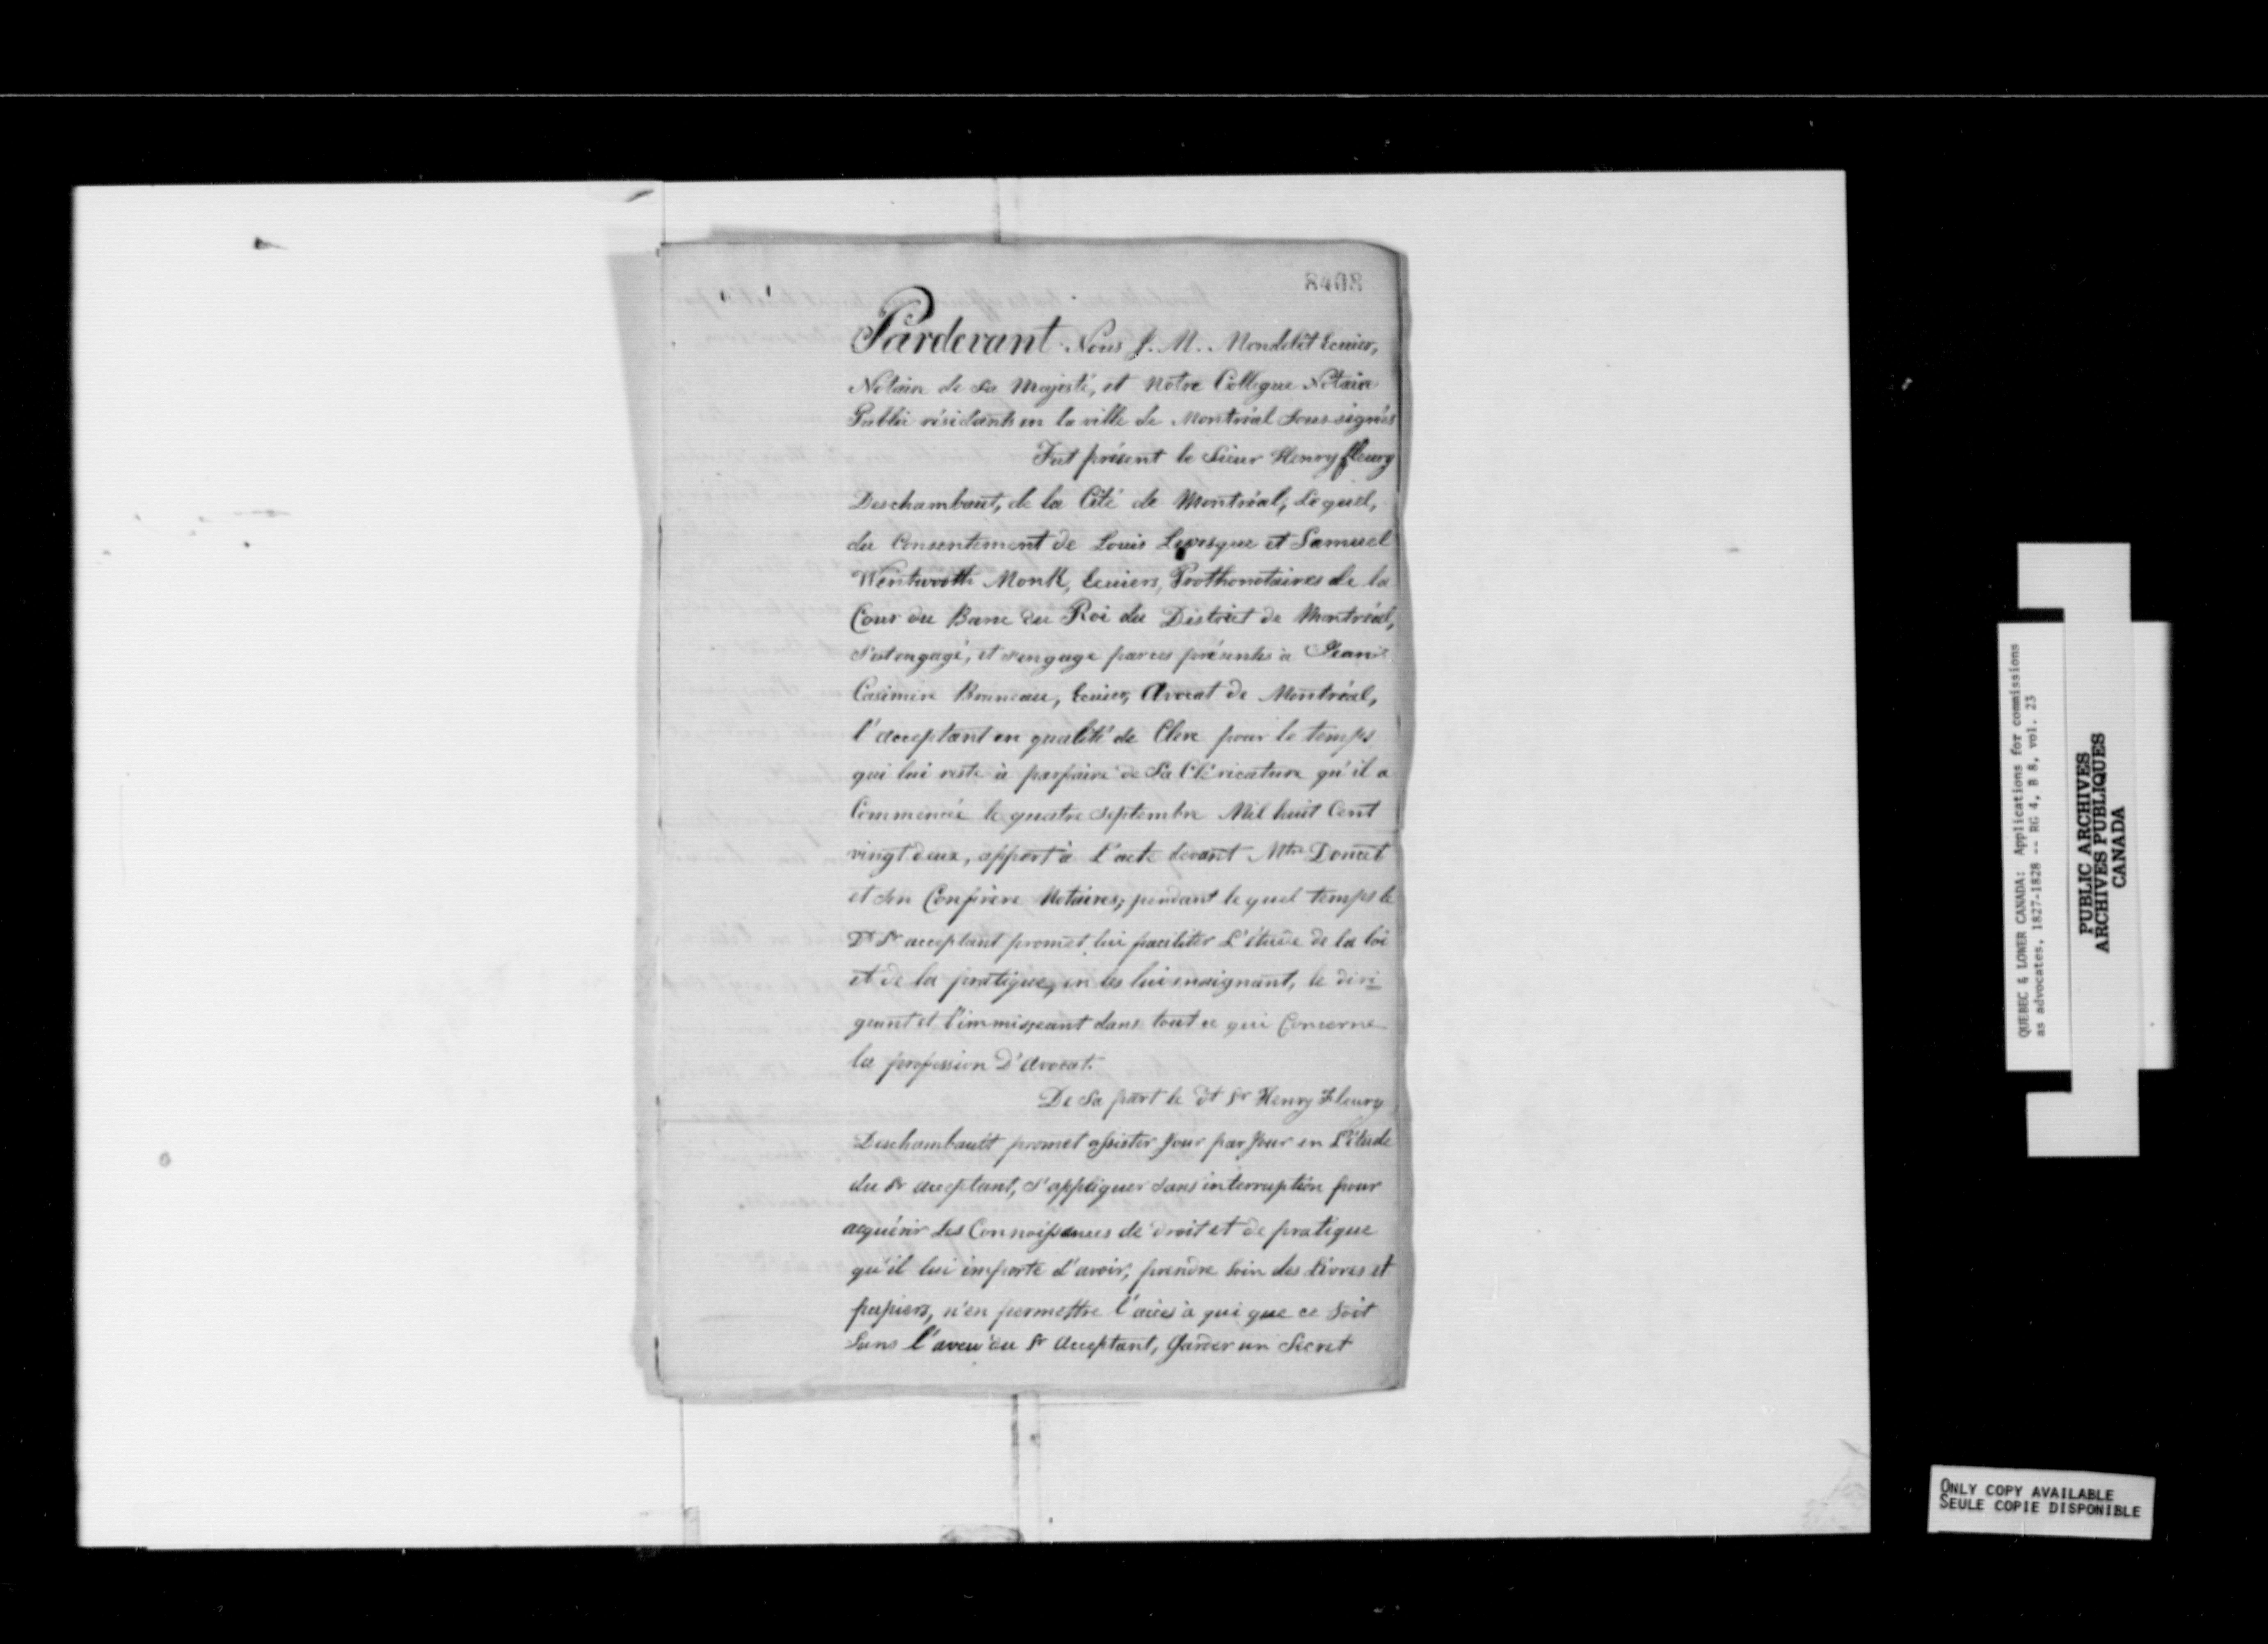 8408
Pardevant Nous J. M. Mondelet Ecuier,
Notaire de Sa Majesté, et Notre Collegue Notaire
Public résidants en la ville de Montréal Sous-signés
Fut présent le Sieur Henry fleury
Deschambaut, de la Cité de Montréal, Lequel,
du Consentement de Louis Levesque et Samuel
Wentworth Monk, Ecuiers, Prothonotaires de la
Cour du Banc du Roi du District de Montréal,
S'est engagé, et s'engage par ces présentes à Jean
Casimire Bruneau, Ecuier, Avocat de Montréal,
l'acceptant en qualité de Clerc pour le temps
qui lui reste à parfaire de Sa Cléricature qu'il a
Commencée le quatre septembre Mil huit Cent
vingt deux, appert à L'acte devant Mtre Doucet
et son Confrère Notaires; pendant le quel temps le
Dt Sr acceptant promet lui faciliter L'étude de la loi
et de la pratique, en les lui enseignant, le diri
geant et l'immisçant dans tout ce qui Concerne
la profession D'Avocat.
De Sa part le dt Sr Henry Fleury
Deschambault promet assister Jour par Jour en L'étude
du Sr acceptant, S'appliquer sans interruption pour
acquérir les Connoissances de droit et de pratique
qu'il lui importe d'avoir, prendre Soin des Livres et
papiers, n'en permettre l'accès à qui que ce Soit
Sans l'aveu du Sr Acceptant, Garder un Secret
QUEBEC & LOWER CANADA: Applications for commissions
as advocates, 1827-1828 -- RG 4, B 8, vol. 23
PUBLIC ARCHIVES
ARCHIVES PUBLIQUES
CANADA
ONLY COPY AVAILABLE
SEULE COPIE DISPONIBLE